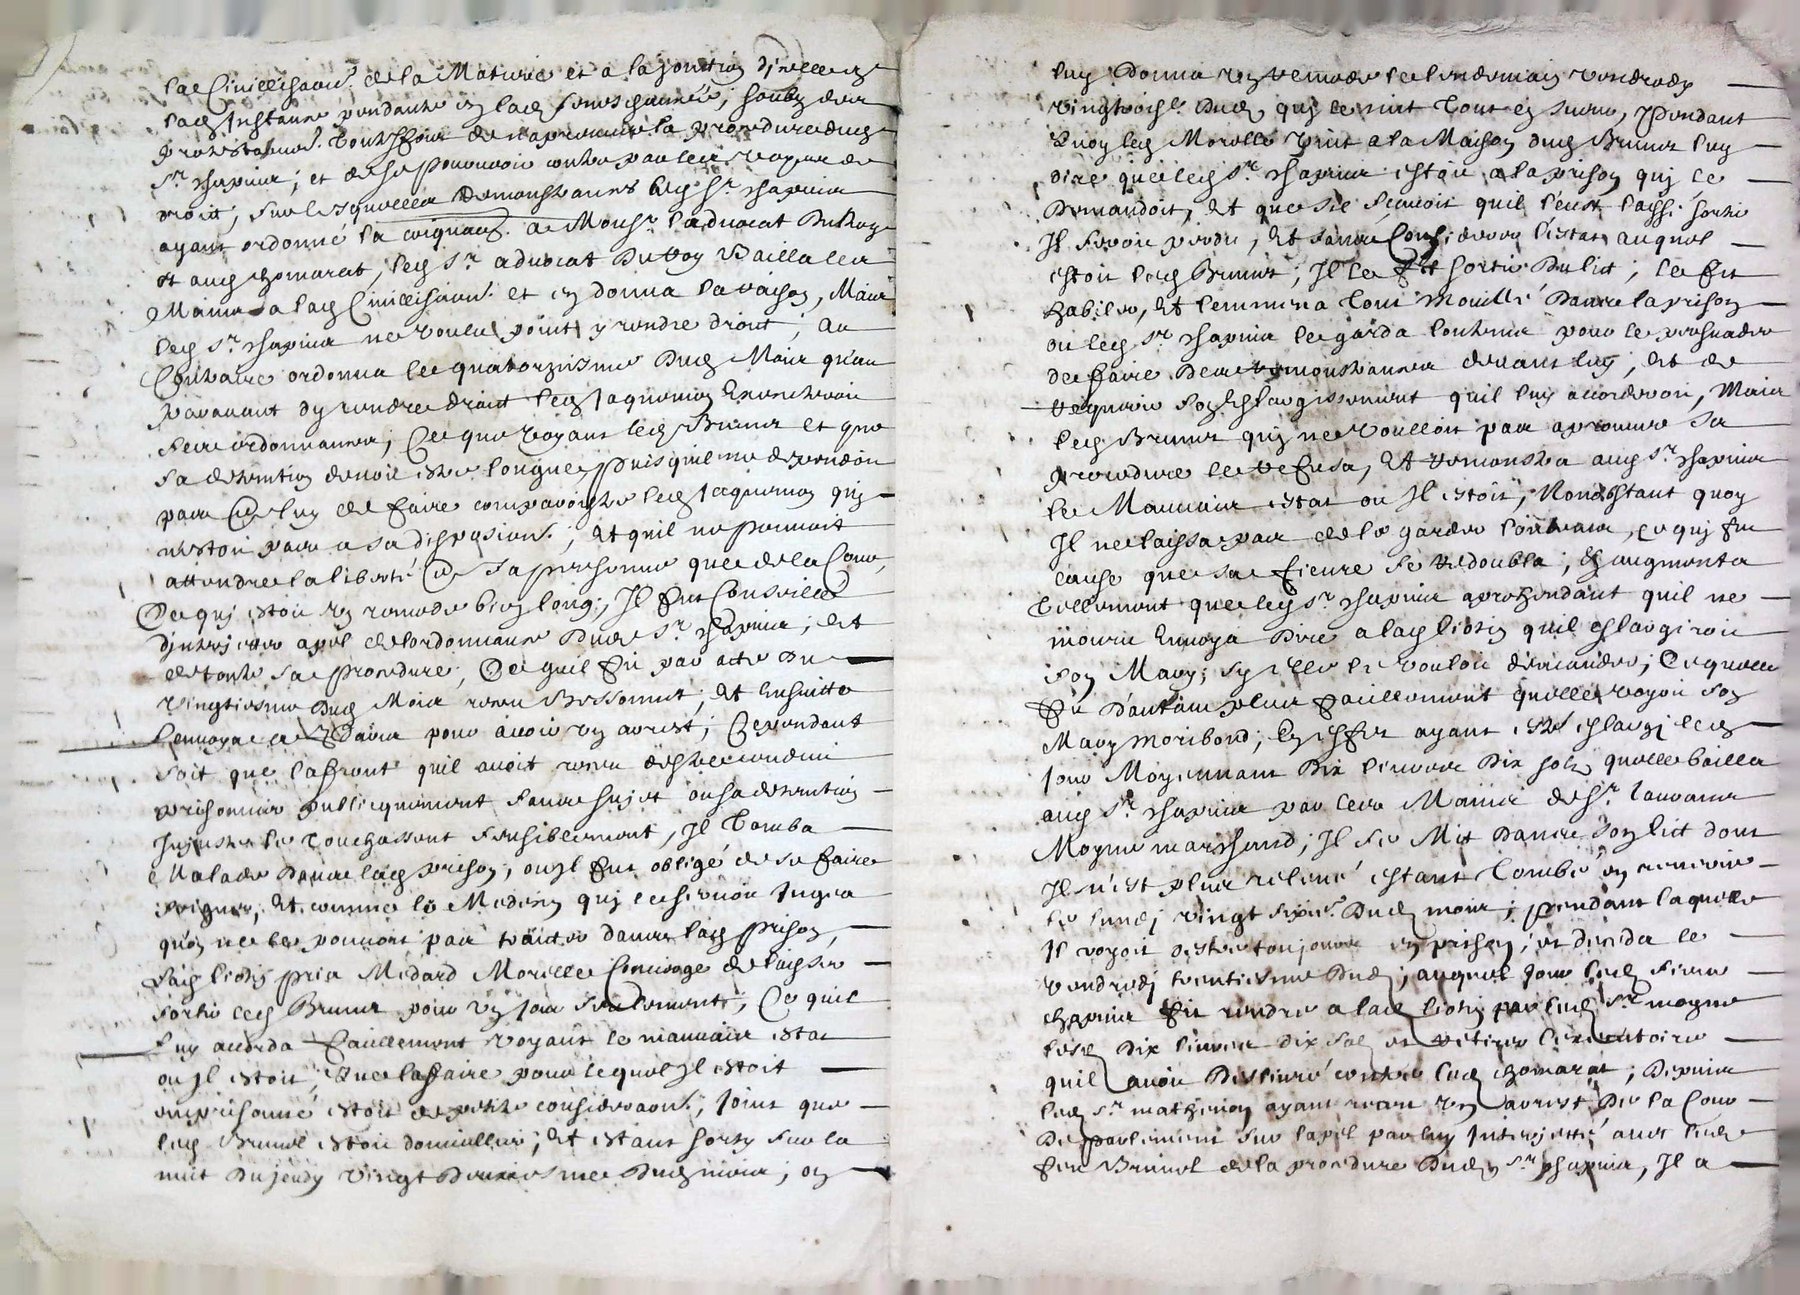 de la Matiere et a la jonction d'icelle
lad. Instance pendante en lad. senechaucée, soubz des
protestations touteffois de n'aprouver la procedure dud.
sr. Chapuis; et de se pourvoir contre par les voyes de
droit, sur lesquelles Remonstrances led. sr. Chapuis
ayant ordonné la a Monsr. l'advocat Du Roy
et aud. Chomarat, led. sr. advocat Du Roy Bailla les
Mains a lad. et en donna la raison, Mais
led. sr. Chapuis ne voulu point y rendre droit, au
Contraire ordonna le quatorziesme Dud. Mois qu'au
paravant d'y rendre droit led. Jaquemon Executeroit
ses ordonnances, Ce que voyant led. Brunet et que
sa detention devoit estre longue, puisqu'il ne dependoit
pas de luy de faire comparoistre led. Jaquemon quj
n'estoit pas a sa disposition; et qu'il ne pouvoit
attendre la liberté de sa personne que de la Cour,
Ce quj estoit un remede bien long, Il fut Conseillé
d'interjetter apel de l'ordonnance Dud. sr. Chapuis, et
de toute sa procedure, Ce qu'il fit par acte du
vingtiesme Dud. Mois receu Bessonnet, et Ensuitte
l'envoya a Paris pour avoir un arrest; Cependant
soit que l'afront qu'il avoit receu d'estre conduit
prisonnier publicquement sans sujet ou sa detention
Injuste le touchassent sensiblement, Il tomba
Malade Dans lad. prison, ou Il fut obligé de se faire
soigner, et comme le Medecin quj le servoit Jugea
qu'on ne le pouvoit pas traitter dans lad. prison,
lad. pria Médard Morelle Concierge de laisser
sortir led. Brunet pour un jour seulement, Ce qu'il
luy accorda facillement voyant le mauvais estat
ou Il estoit, Que l'affaire pour lequel Il estoit
emprisonné estoit de petite consideration, Joint que
led. Brunet estoit domicillié; et estant sorty sur la
nuit du jeudy vingt Deuxiesme Dud. mois, on
luy Donna un remede le lendemain vendredy
vingt Dud. quj le mit tout en sueur, Pendant
Quoy led. Morelle vint a la Maison dud. Brunet luy
dire que led. sr. Chapuis estoit a la prison quj le
Demandoit, et que s'il sçavoit qu'il l'eust laissé sortir
Il seroit perdu, et sans Considerer l'estat auquel
estoit led. Brunet; Il le fit sortir Du lit, le fit
habiller, et l'emmena tout mouillé Dans la prison
ou led. sr. Chapuis le garda longtemps pour le persuader
de faire Des remonstrances devant luy, et de
requerir son Eslargissement qu'il luy accorderoit, Mais
led. Brunet quj ne vouloit pas aprouver sa
procedure le refusa, et remonstra aud. sr. Chapuis
le Mauvais estat ou Il estoit, Nonobstant quoy
Il ne laissa pas de le garder longtemps, ce quj fut
cause que sa fievre se redoubla, et augmenta
tellement que led. sr. Chapuis aprehendant qu'il ne
mourut Envoya Dire a lad. qu'il eslargiroit
son Mary, sy elle le vouloit demander, Ce qu'elle
fit D'autant plus facillement qu'elle voyoit son
Mary moribond; En effet ayant esté eslargj led.
jour Moyennant Dix livres Dix solz qu'elle bailla
aud. sr. Chapuis par les Mains de sr.
Moyne marchand; Il se Mit Dans son lict dont
Il n'est plus relevé estant tombé en
le lundj vingt sixie. Dud. mois, pendant laquelle
Il voyoit d'estre toujours en prison, et deceda le
vendredj trentiesme Dud., auquel jour led. sieur
Chapuis fit rendre a lad. par led. sr. moyne
lesd. Dix livres dix solz et retirer l'executoire
qu'il avoit Delivré contre led. Chomarat, Depuis
led. sr. mathevon ayant receu un arrest De la Cour
De parlement sur l'apel par luy Interjetté avec led.
feu Brunet de la procedure Dud. sr. Chapuis, Il a